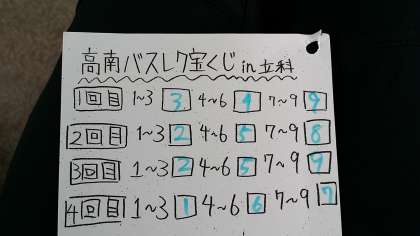 高南バスレク宝くじin立科
1回目 1~3 3 4~6 4 7~9 9
2回目 1~3 2 4~6 5 7~9 8
3回目 1~3 2 4~6 5 7~9 9
4回目 1~3 1 4~6 6 7~9 7